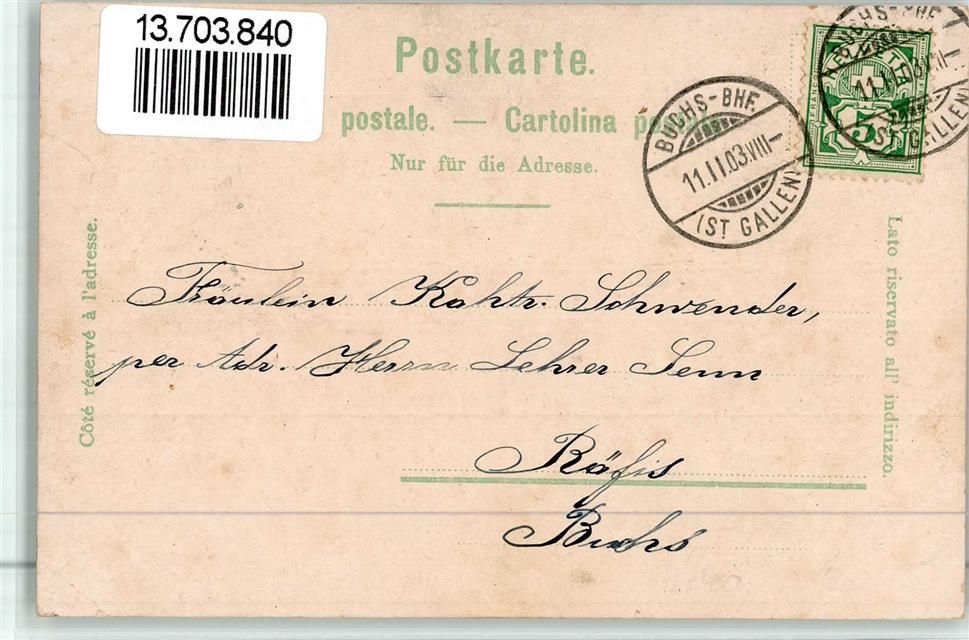 13.703.840
Postkarte.
postale. — Cartolina
Nur für die Adresse.
BUCHS-BHF.
11.II.03.VIII-
(ST GALLEN)
BUCHS-BHF.
(ST GALLEN)
5
Côté réservé à l'adresse.
Lato riservato all' indirizzo.
Fräulein Kathr. Schwender,
per Adr. Herrn Lehrer Senn
Räfis
Buchs